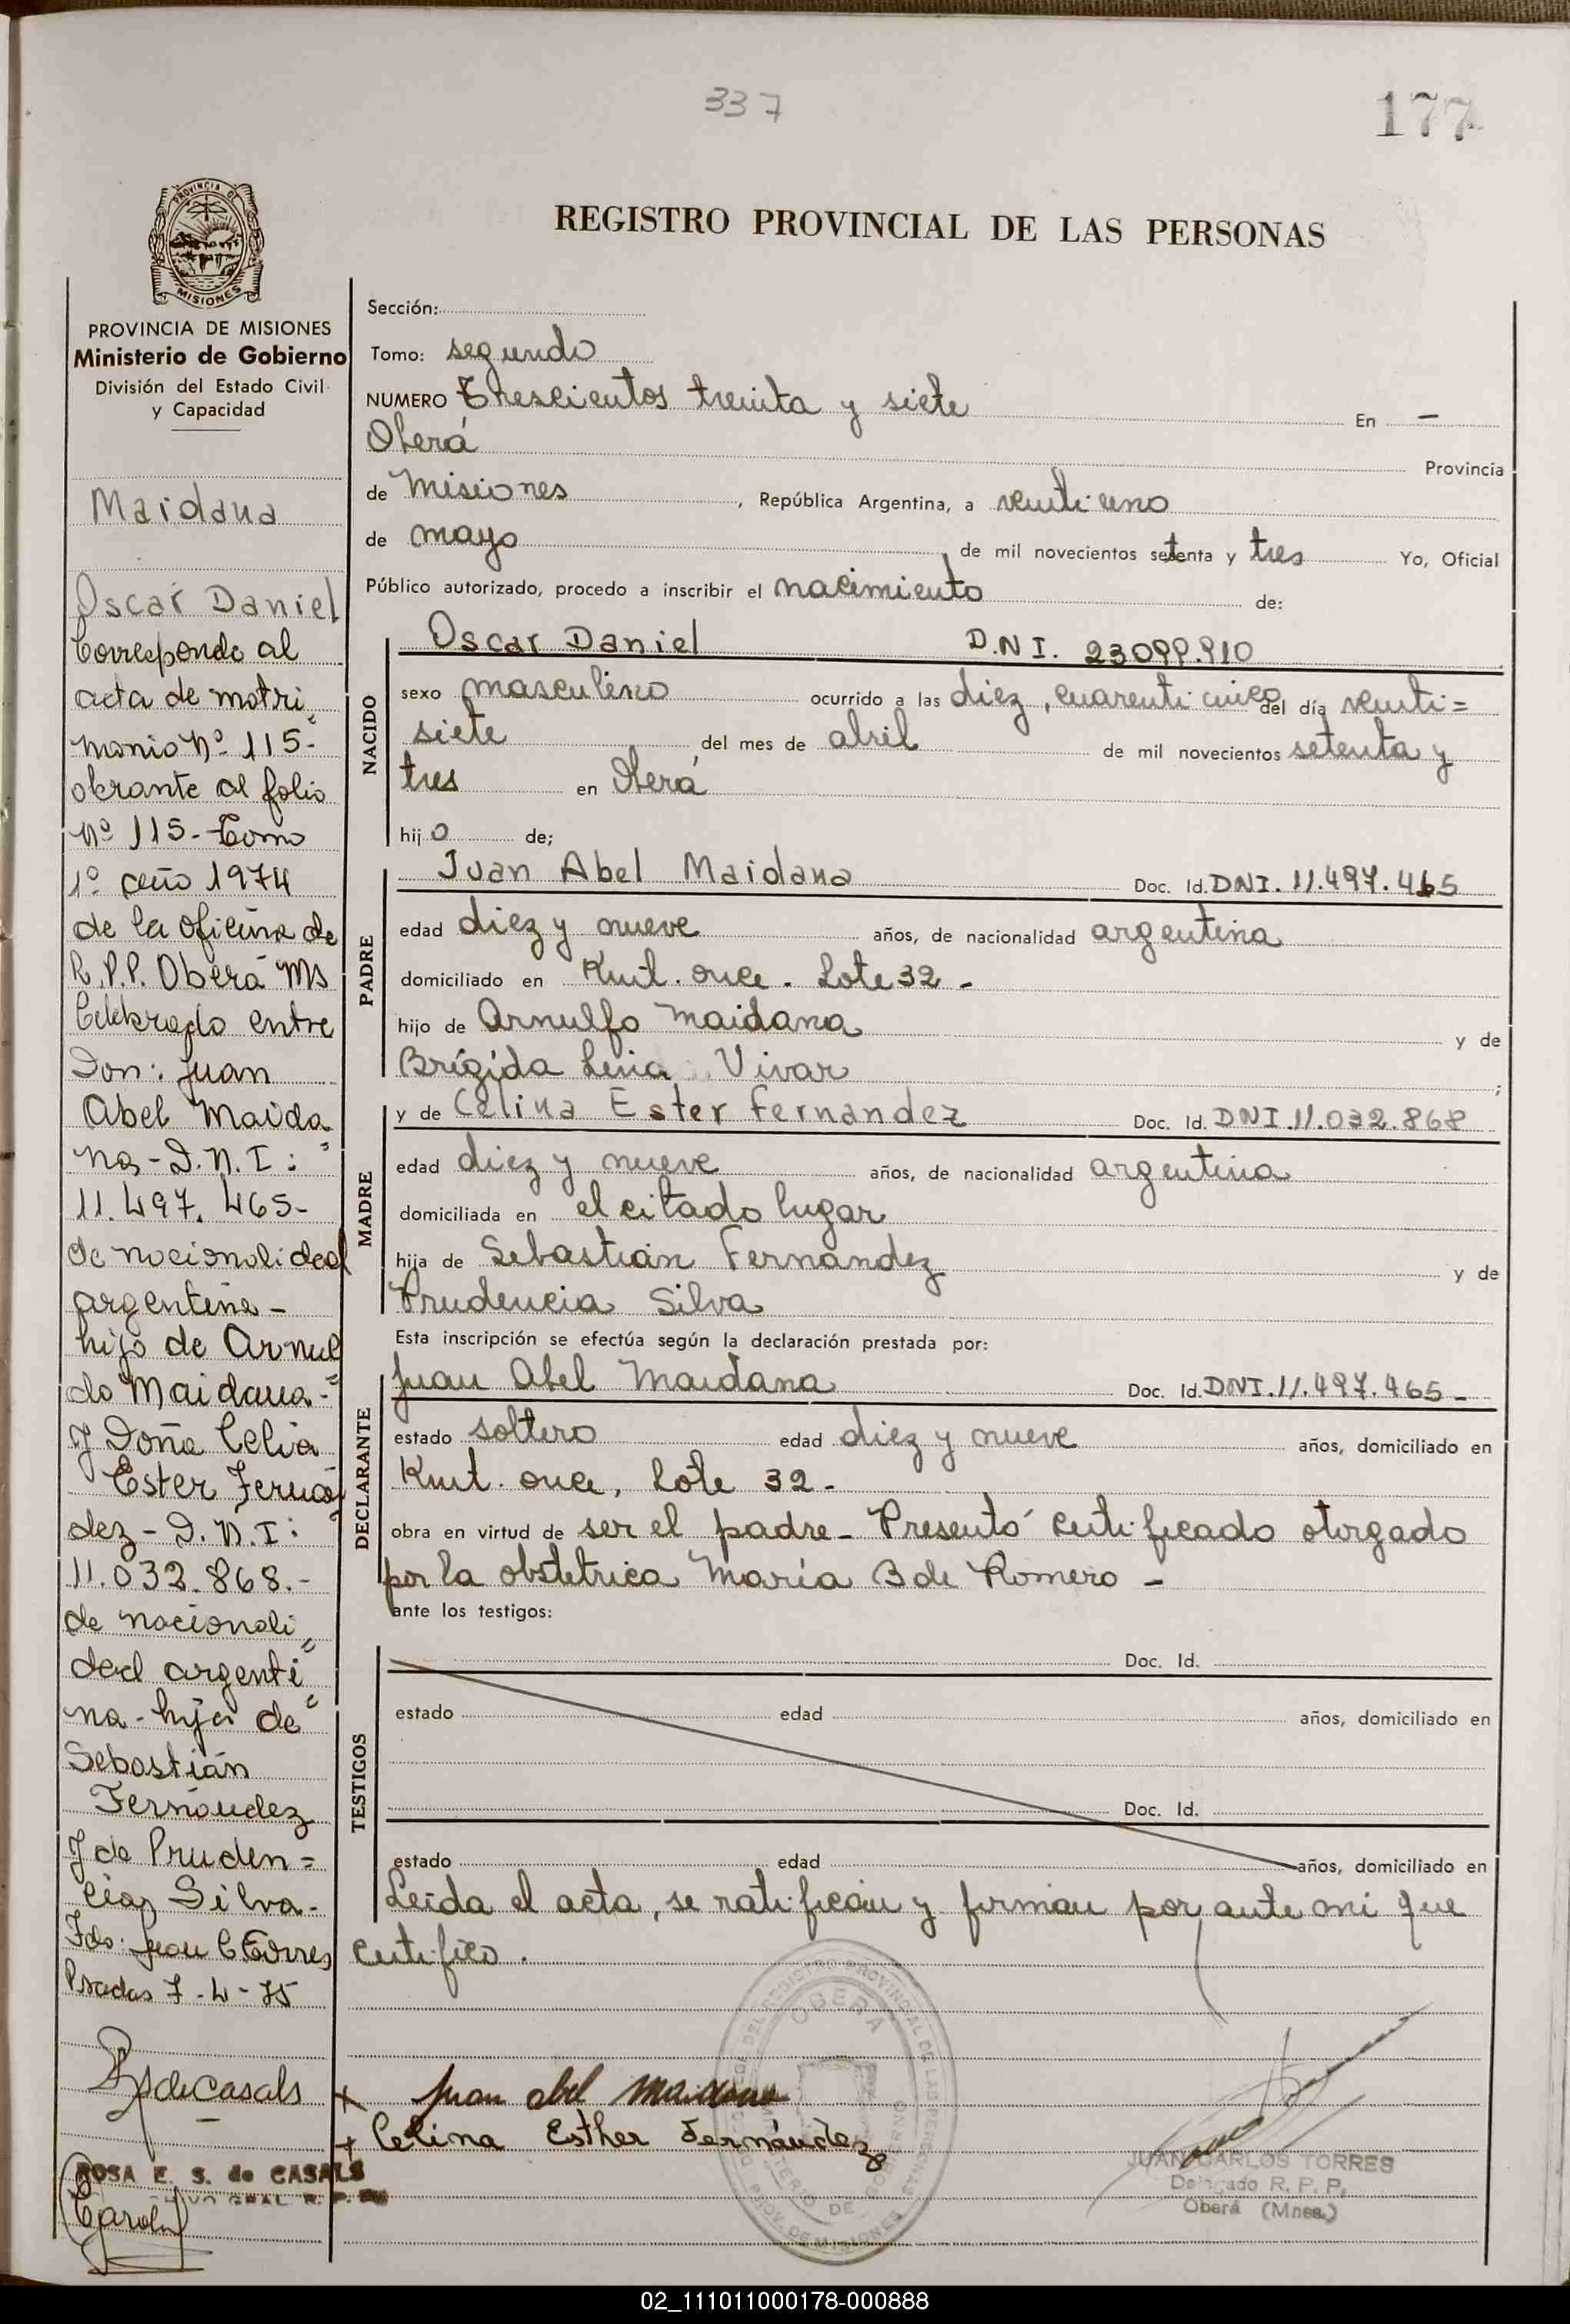 337
177
REGISTRO PROVINCIAL DE LAS PERSONAS
PROVINCIA DE MISIONES
PROVINCIA DE MISIONES
Ministerio de Gobierno
División del Estado Civil
y Capacidad
Maidana
Oscar Daniel
Corresponde al
acta de matri
monio Nº 115-
obrante al folio
Nº 115- Tomo
1º año 1974
de la oficina de
R.P.P. Oberá Ms
Celebrado entre
Don: Juan
Abel Maida
na - D.N.I:
11.497.465-
de nacionalidad
argentina -
hijo de Arnul
do Maidana -
y Doña Celia
Ester Fernán
dez - D.N.I:
11.032.868.-
de nacionali
dad argenti
na - hija de
Sebastián
Fernández
y de Pruden=
cia Silva.
Fdo: Juan C Torres
Posadas 7-4-75
RSdeCasals
ROSA E. S. de CASALS
GRAL. R. P.
Sección:
Tomo: segundo
NUMERO Trescientos treinta y siete En -
Oberá Provincia
de Misiones, República Argentina, a veintiuno
de mayo de mil novecientos setenta y tres Yo, Oficial
Público autorizado, procedo a inscribir el nacimiento de:
NACIDO
Oscar Daniel D.N.I. 23099.910
sexo masculino ocurrido a las diez, cuarenticinco del día veinti=
siete del mes de abril de mil novecientos setenta y
tres en Oberá
hijo de;
PADRE
Juan Abel Maidana Doc. Id. DNI. 11.497.465
edad diez y nueve años, de nacionalidad argentina
domiciliado en Kmt. once. Lote 32 -
hijo de Arnulfo Maidana y de
Brígida Vivar ;
MADRE
y de Celina Ester Fernandez Doc. Id. DNI.11.032.868
edad diez y nueve años, de nacionalidad argentina
domiciliada en el citado lugar
hija de Sebastián Fernández y de
Prudencia Silva
Esta inscripción se efectúa según la declaración prestada por:
DECLARANTE
Juan Abel Maidana Doc. Id. DNI.11.497.465-
estado soltero edad diez y nueve años, domiciliado en
Kmt. once, Lote 32-
obra en virtud de ser el padre - Presentó certificado otorgado
por la obstetrica María B de Romero -
ante los testigos:
TESTIGOS
Doc. Id.
estado edad años, domiciliado en
Doc. Id.
estado edad años, domiciliado en
Leída el acta, se ratifican y firman por ante mi que
certifico.
Juan abel Maidana
Celina Esther Fernández
OBERA
JUAN CARLOS TORRES
Delegado R. P. P.
Oberá (Mnes.)
02_111011000178-000888